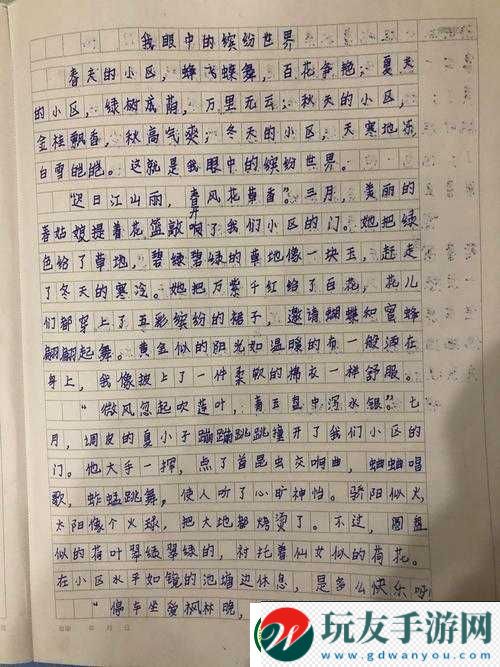 我眼中的缤纷世界
春天的小区，蜂飞蝶舞，百花争艳；夏天
的小区，绿树成荫，万里无云；秋天的小区，
金桂飘香，秋高气爽；冬天的小区，天寒地冻
白雪皑皑。这就是我眼中的缤纷世界。
“迟日江山丽，春风花草香”。三月，美丽的
春姑娘提着花篮敲开了我们小区的门。她把绿
色给了草地，碧绿碧绿的草地像一块玉，赶走
了冬天的寒冷。她把万紫千红给了百花，花儿
们都穿上了五彩缤纷的裙子，邀请蝴蝶和蜜蜂
翩翩起舞。黄金似的阳光如温暖的布一般洒在
身上，我像披上了一件柔软的棉衣一样舒服。
“微风忽起吹莲叶，青玉盘中泻水银”。七
月，调皮的夏小子蹦蹦跳跳撞开了我们小区的
门。他大手一挥，点了首昆虫交响曲，蝈蝈唱
歌，蚱蜢跳舞，使人听了心旷神怡。骄阳似火，
太阳像个火球，把大地都烧烫了。不过，圆盘
似的荷叶翠绿翠绿的，衬托着仙女似的荷花。
在小区水平如镜的池塘边休息，是多么快乐呀
“停车坐爱枫林晚，
玩友手游网
www.gdwanyou.com